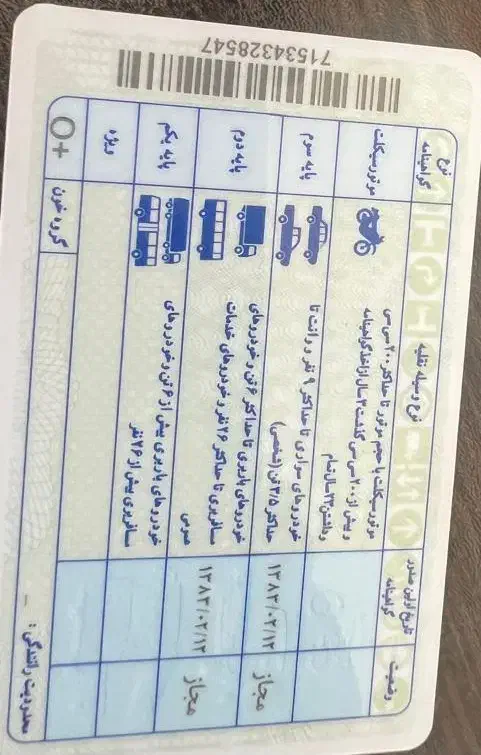 71534328547
نوع گواهینامه
نوع وسیله نقلیه
تاریخ اولین صدور گواهینامه
وضعیت
موتورسیکلت
موتورسیکلت با حجم موتور تا حداکثر ۲۰۰ سی سی
و بیش از ۲۰۰ سی سی گذشت ۳ سال از اخذ گواهینامه
و داشتن ۲۳ سال تمام
پایه سوم
خودروهای سواری تا حداکثر ۹ نفر و وانت تا
حداکثر ۳/۵ تن (شخصی)
۱۳۸۳/۰۲/۱۲
مجاز
پایه دوم
خودروهای باربری تا حداکثر ۶ تن و خودروهای
مسافربری تا حداکثر ۲۶ نفر و خودروهای خدمات
عمومی
۱۳۸۳/۰۲/۱۲
مجاز
پایه یکم
خودروهای باربری بیش از ۶ تن و خودروهای
مسافربری بیش از ۲۶ نفر
ویژه
گروه خون
O+
محدودیت رانندگی : -